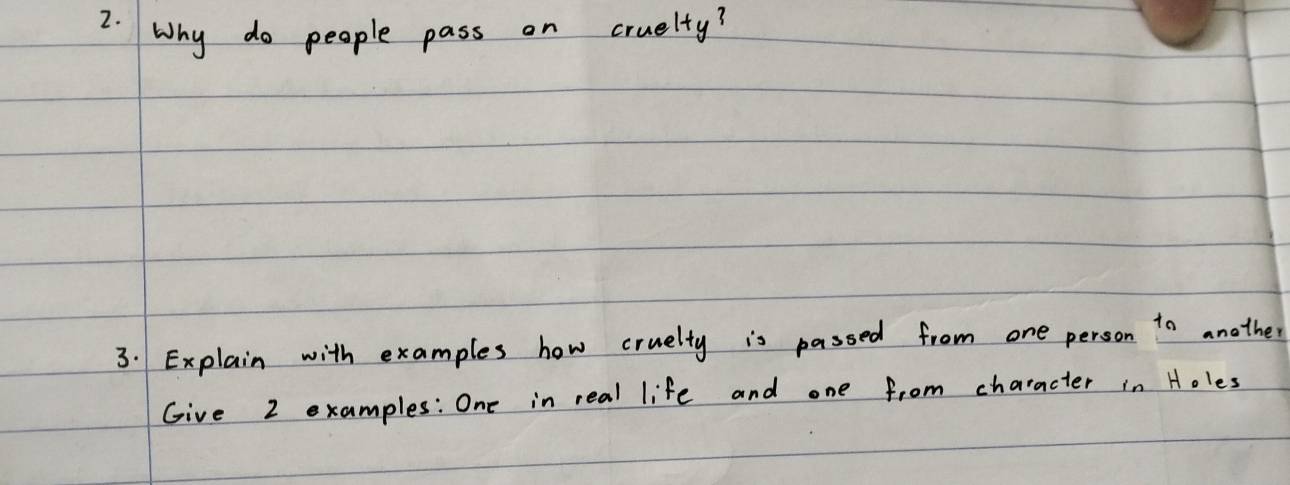 2. Why do people pass on cruelty?
3. Explain with examples how cruelty is passed from one person to another
Give 2 examples: One in real life and one from character in Holes